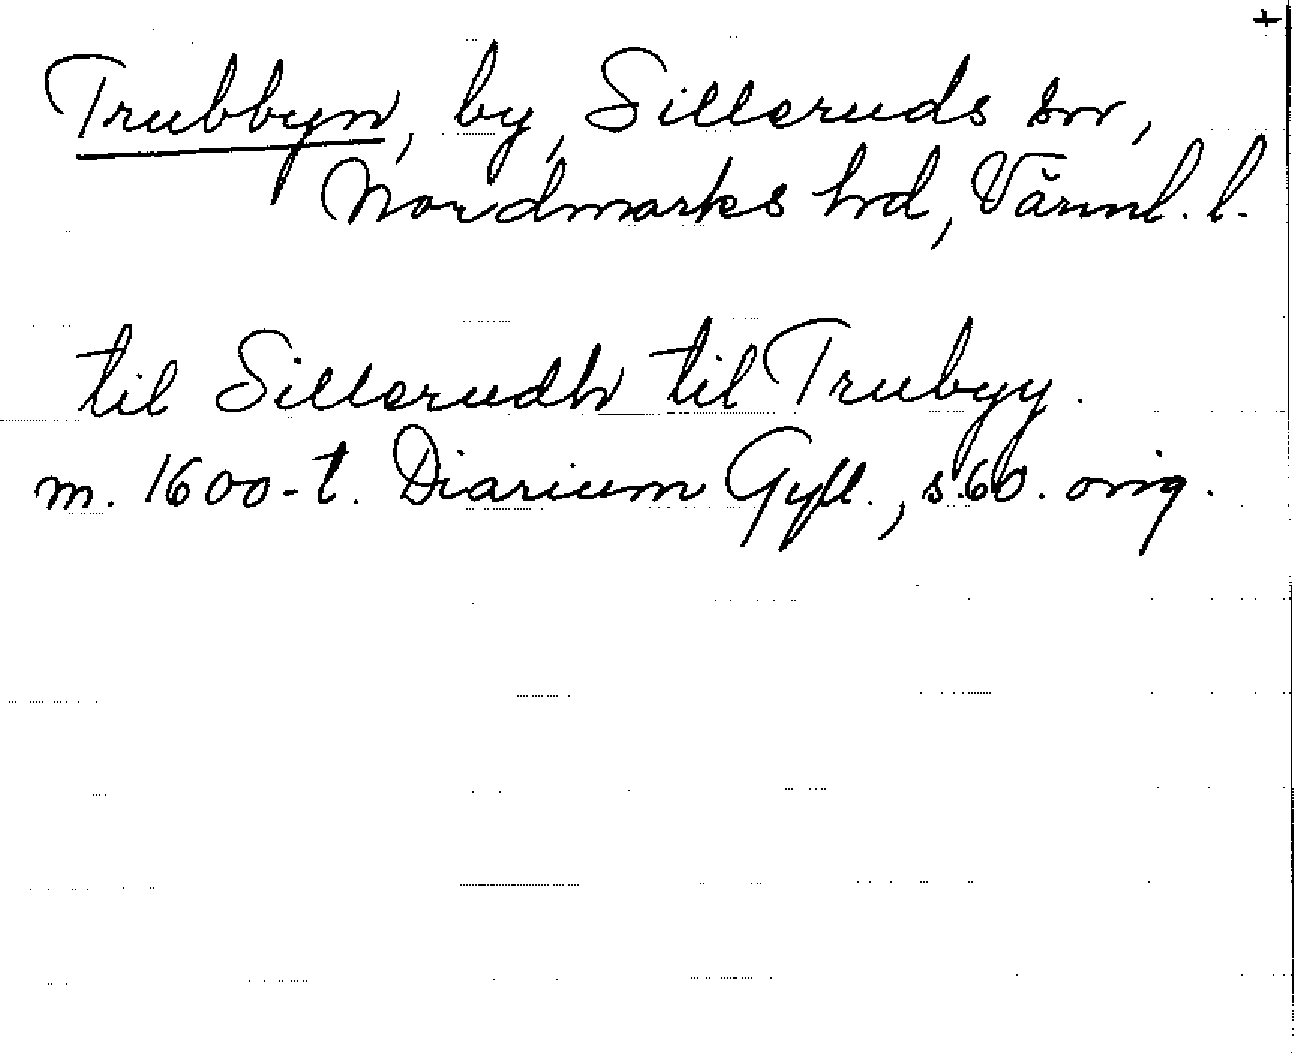 +
Trubbyn, by, Silleruds sn,
Nordmarks hd, Värml. l.
til Sillerudh til Trubyy.
m. 1600-t. Diarium Gyll., s.60. orig.